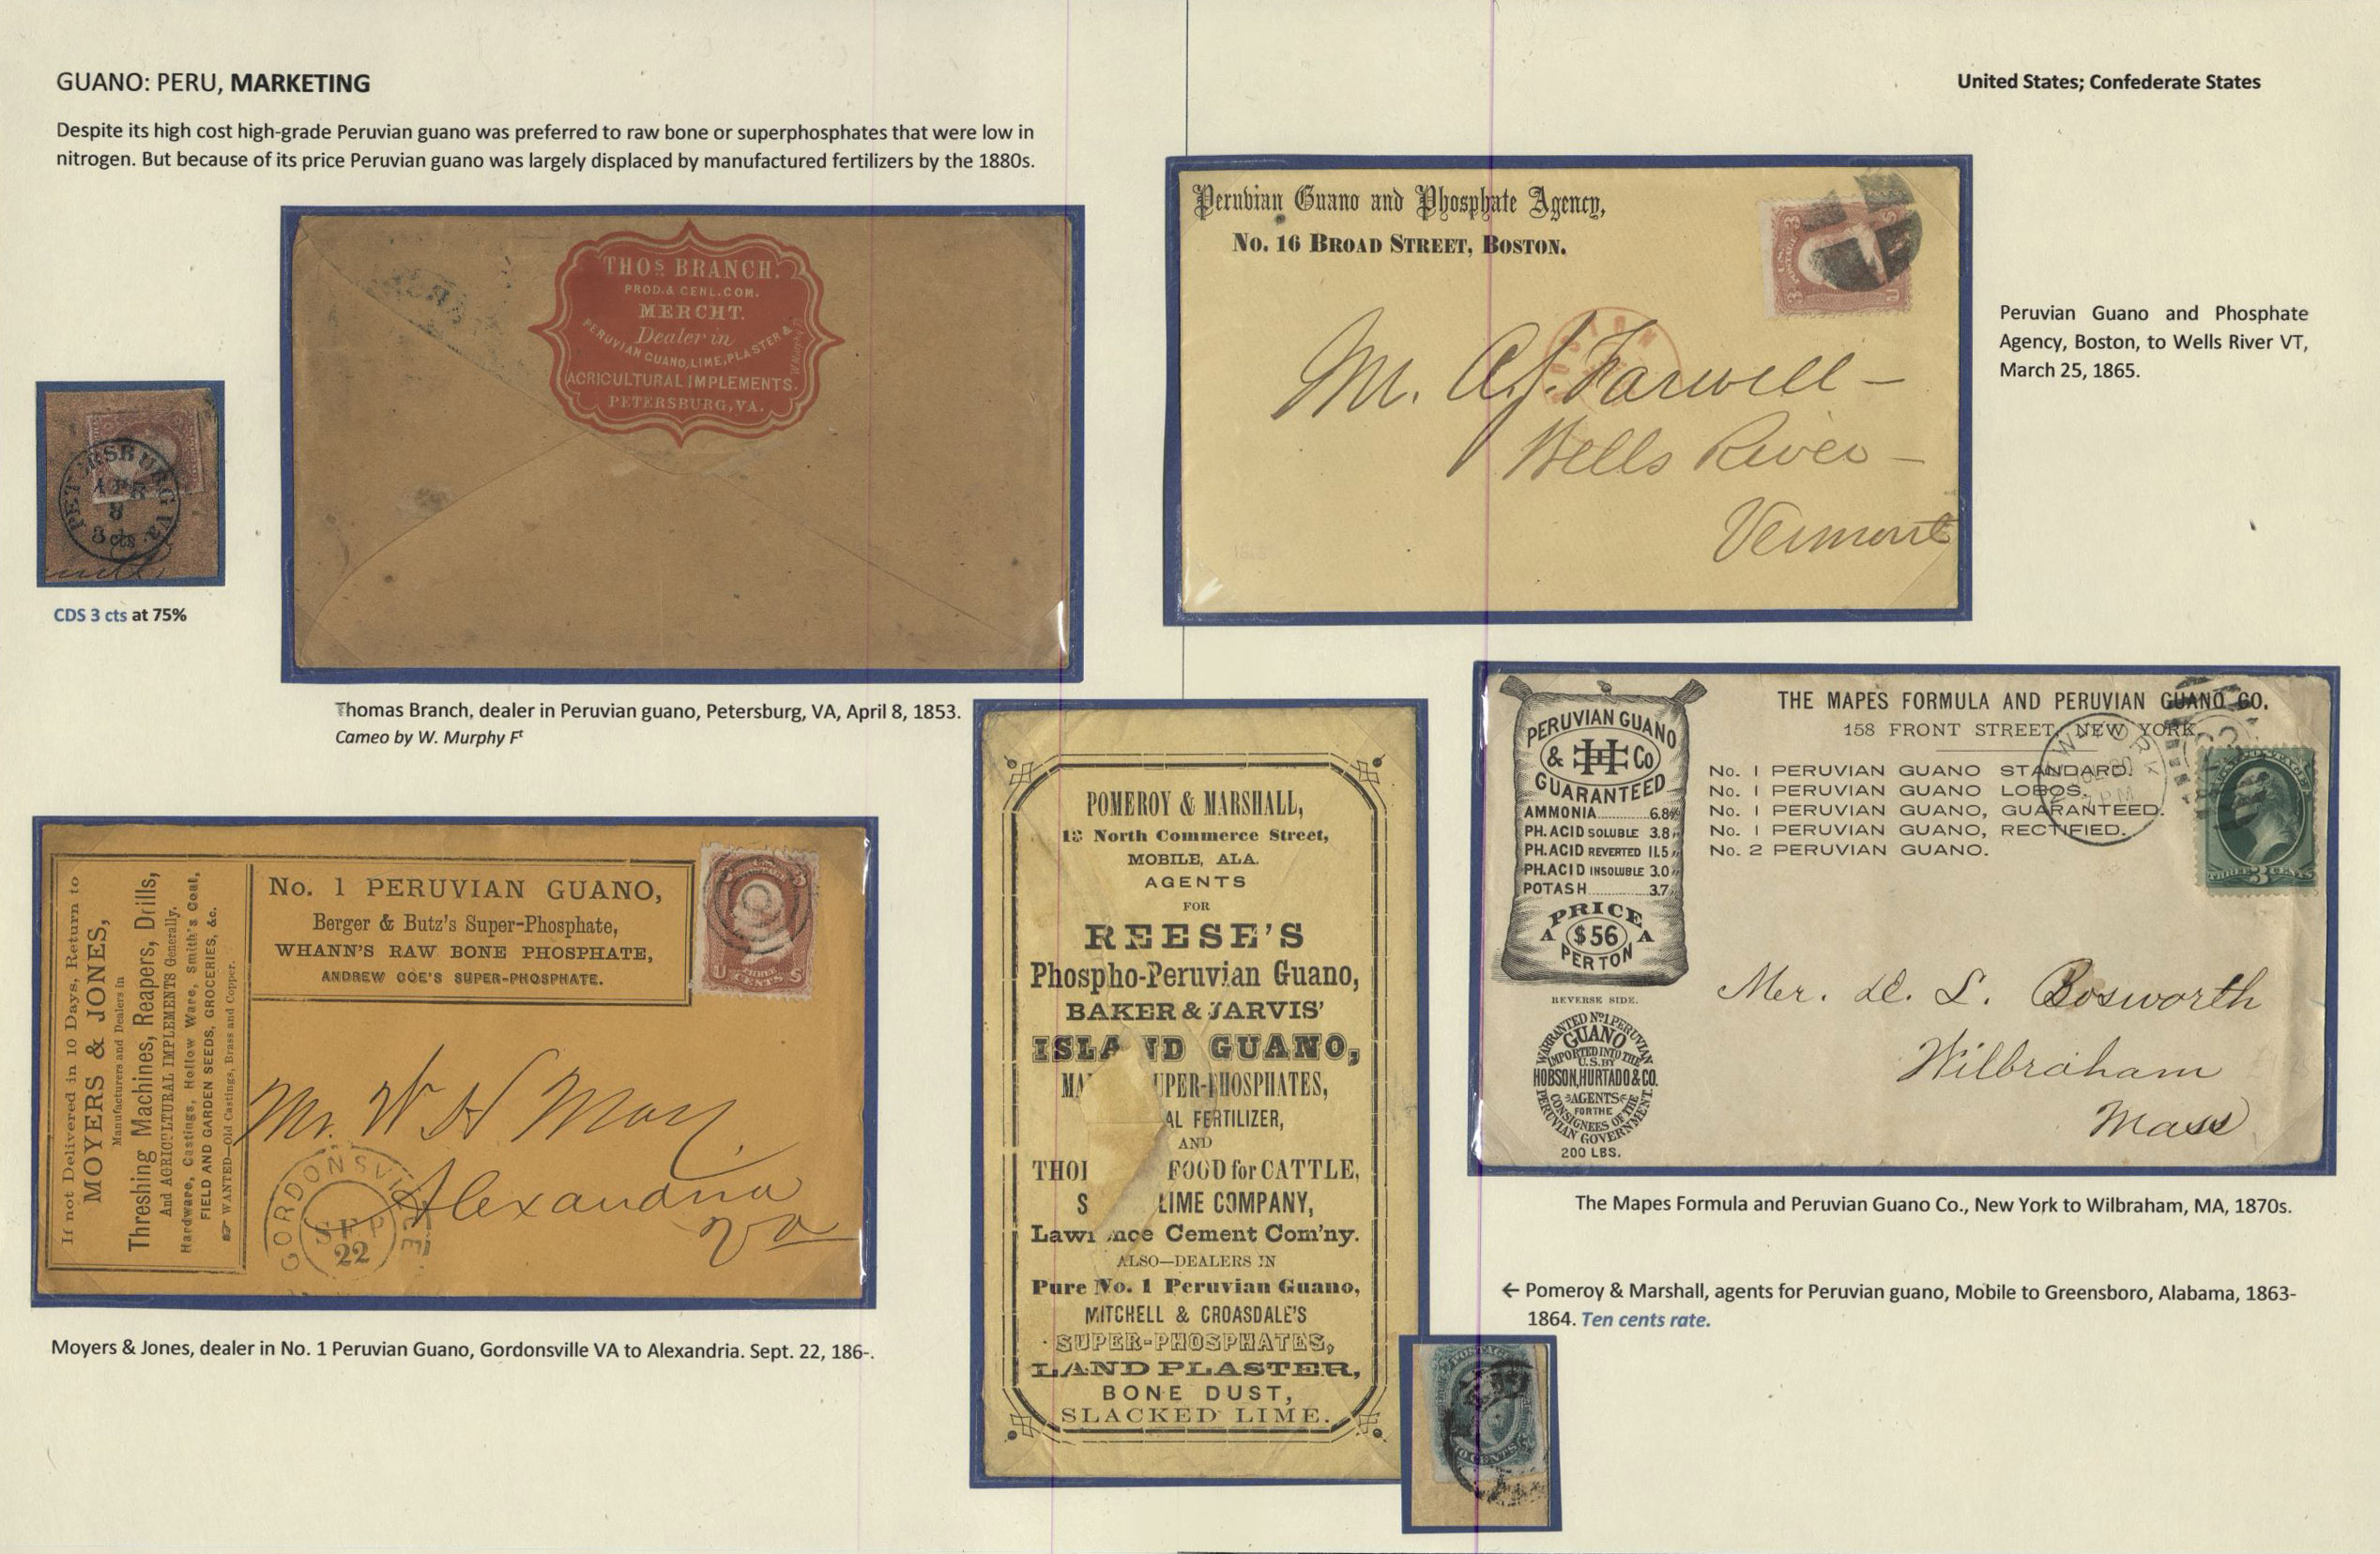 GUANO: PERU, MARKETING
United States; Confederate States
Despite its high cost high-grade Peruvian guano was preferred to raw bone or superphosphates that were low in
nitrogen. But because of its price Peruvian guano was largely displaced by manufactured fertilizers by the 1880s.
THOS BRANCH.
PROD. & GENL. COM.
MERCHT.
Dealer in
PERUVIAN GUANO, LIME, PLASTER &
AGRICULTURAL IMPLEMENTS.
PETERSBURG, VA.
PETERSBURG VA
APR
8
3 cts
CDS 3 cts at 75%
Thomas Branch, dealer in Peruvian guano, Petersburg, VA, April 8, 1853.
Cameo by W. Murphy Ft
Peruvian Guano and Phosphate Agency,
No. 16 BROAD STREET, BOSTON.
3
U
Mr. A. J. Farwell –
Wells River –
Vermont
Peruvian Guano and Phosphate
Agency, Boston, to Wells River VT,
March 25, 1865.
If not Delivered in 10 Days, Return to
MOYERS & JONES,
Manufacturers and Dealers in
Threshing Machines, Reapers, Drills,
And AGRICULTURAL IMPLEMENTS Generally.
Hardware, Castings, Hollow Ware, Smith's Coal,
FIELD AND GARDEN SEEDS, GROCERIES, &c.
☞ WANTED—Old Castings, Brass and Copper.
No. 1 PERUVIAN GUANO,
Berger & Butz's Super-Phosphate,
WHANN'S RAW BONE PHOSPHATE,
ANDREW COE'S SUPER-PHOSPHATE.
U THREE CENTS S
Mr. W H May
Alexandria
Va
GORDONSVILLE
SEP
22
Moyers & Jones, dealer in No. 1 Peruvian Guano, Gordonsville VA to Alexandria. Sept. 22, 186-.
POMEROY & MARSHALL,
13 North Commerce Street,
MOBILE, ALA.
AGENTS
FOR
REESE'S
Phospho-Peruvian Guano,
BAKER & JARVIS'
ISLA ND GUANO,
MA UPER-PHOSPHATES,
AL FERTILIZER,
AND
THO FOOD for CATTLE,
S LIME COMPANY,
Law nce Cement Com'ny.
ALSO—DEALERS IN
Pure No. 1 Peruvian Guano,
MITCHELL & CROASDALE'S
SUPER-PHOSPHATES,
LAND PLASTER,
BONE DUST,
SLACKED LIME.
PERUVIAN GUANO
& HH Co
GUARANTEED
AMMONIA 6.8%
PH. ACID SOLUBLE 3.8 "
PH. ACID REVERTED 11.5 "
PH. ACID INSOLUBLE 3.0 "
POTASH 3.7 "
PRICE
A $56 A
PER TON
REVERSE SIDE.
WARRANTED No 1 PERUVIAN
GUANO
IMPORTED INTO THE
U.S. BY
HOBSON, HURTADO & CO.
AGENTS
FOR THE
CONSIGNEES OF THE
PERUVIAN GOVERNMENT.
200 LBS.
THE MAPES FORMULA AND PERUVIAN GUANO CO.
158 FRONT STREET, NEW YORK.
No. 1 PERUVIAN GUANO STANDARD.
No. 1 PERUVIAN GUANO LOBOS.
No. 1 PERUVIAN GUANO, GUARANTEED.
No. 1 PERUVIAN GUANO, RECTIFIED.
No. 2 PERUVIAN GUANO.
THREE 3 CENTS
Mer. D. L. Bosworth
Wilbraham
Mass
The Mapes Formula and Peruvian Guano Co., New York to Wilbraham, MA, 1870s.
← Pomeroy & Marshall, agents for Peruvian guano, Mobile to Greensboro, Alabama, 1863-
1864. Ten cents rate.
POSTAGE
CENTS